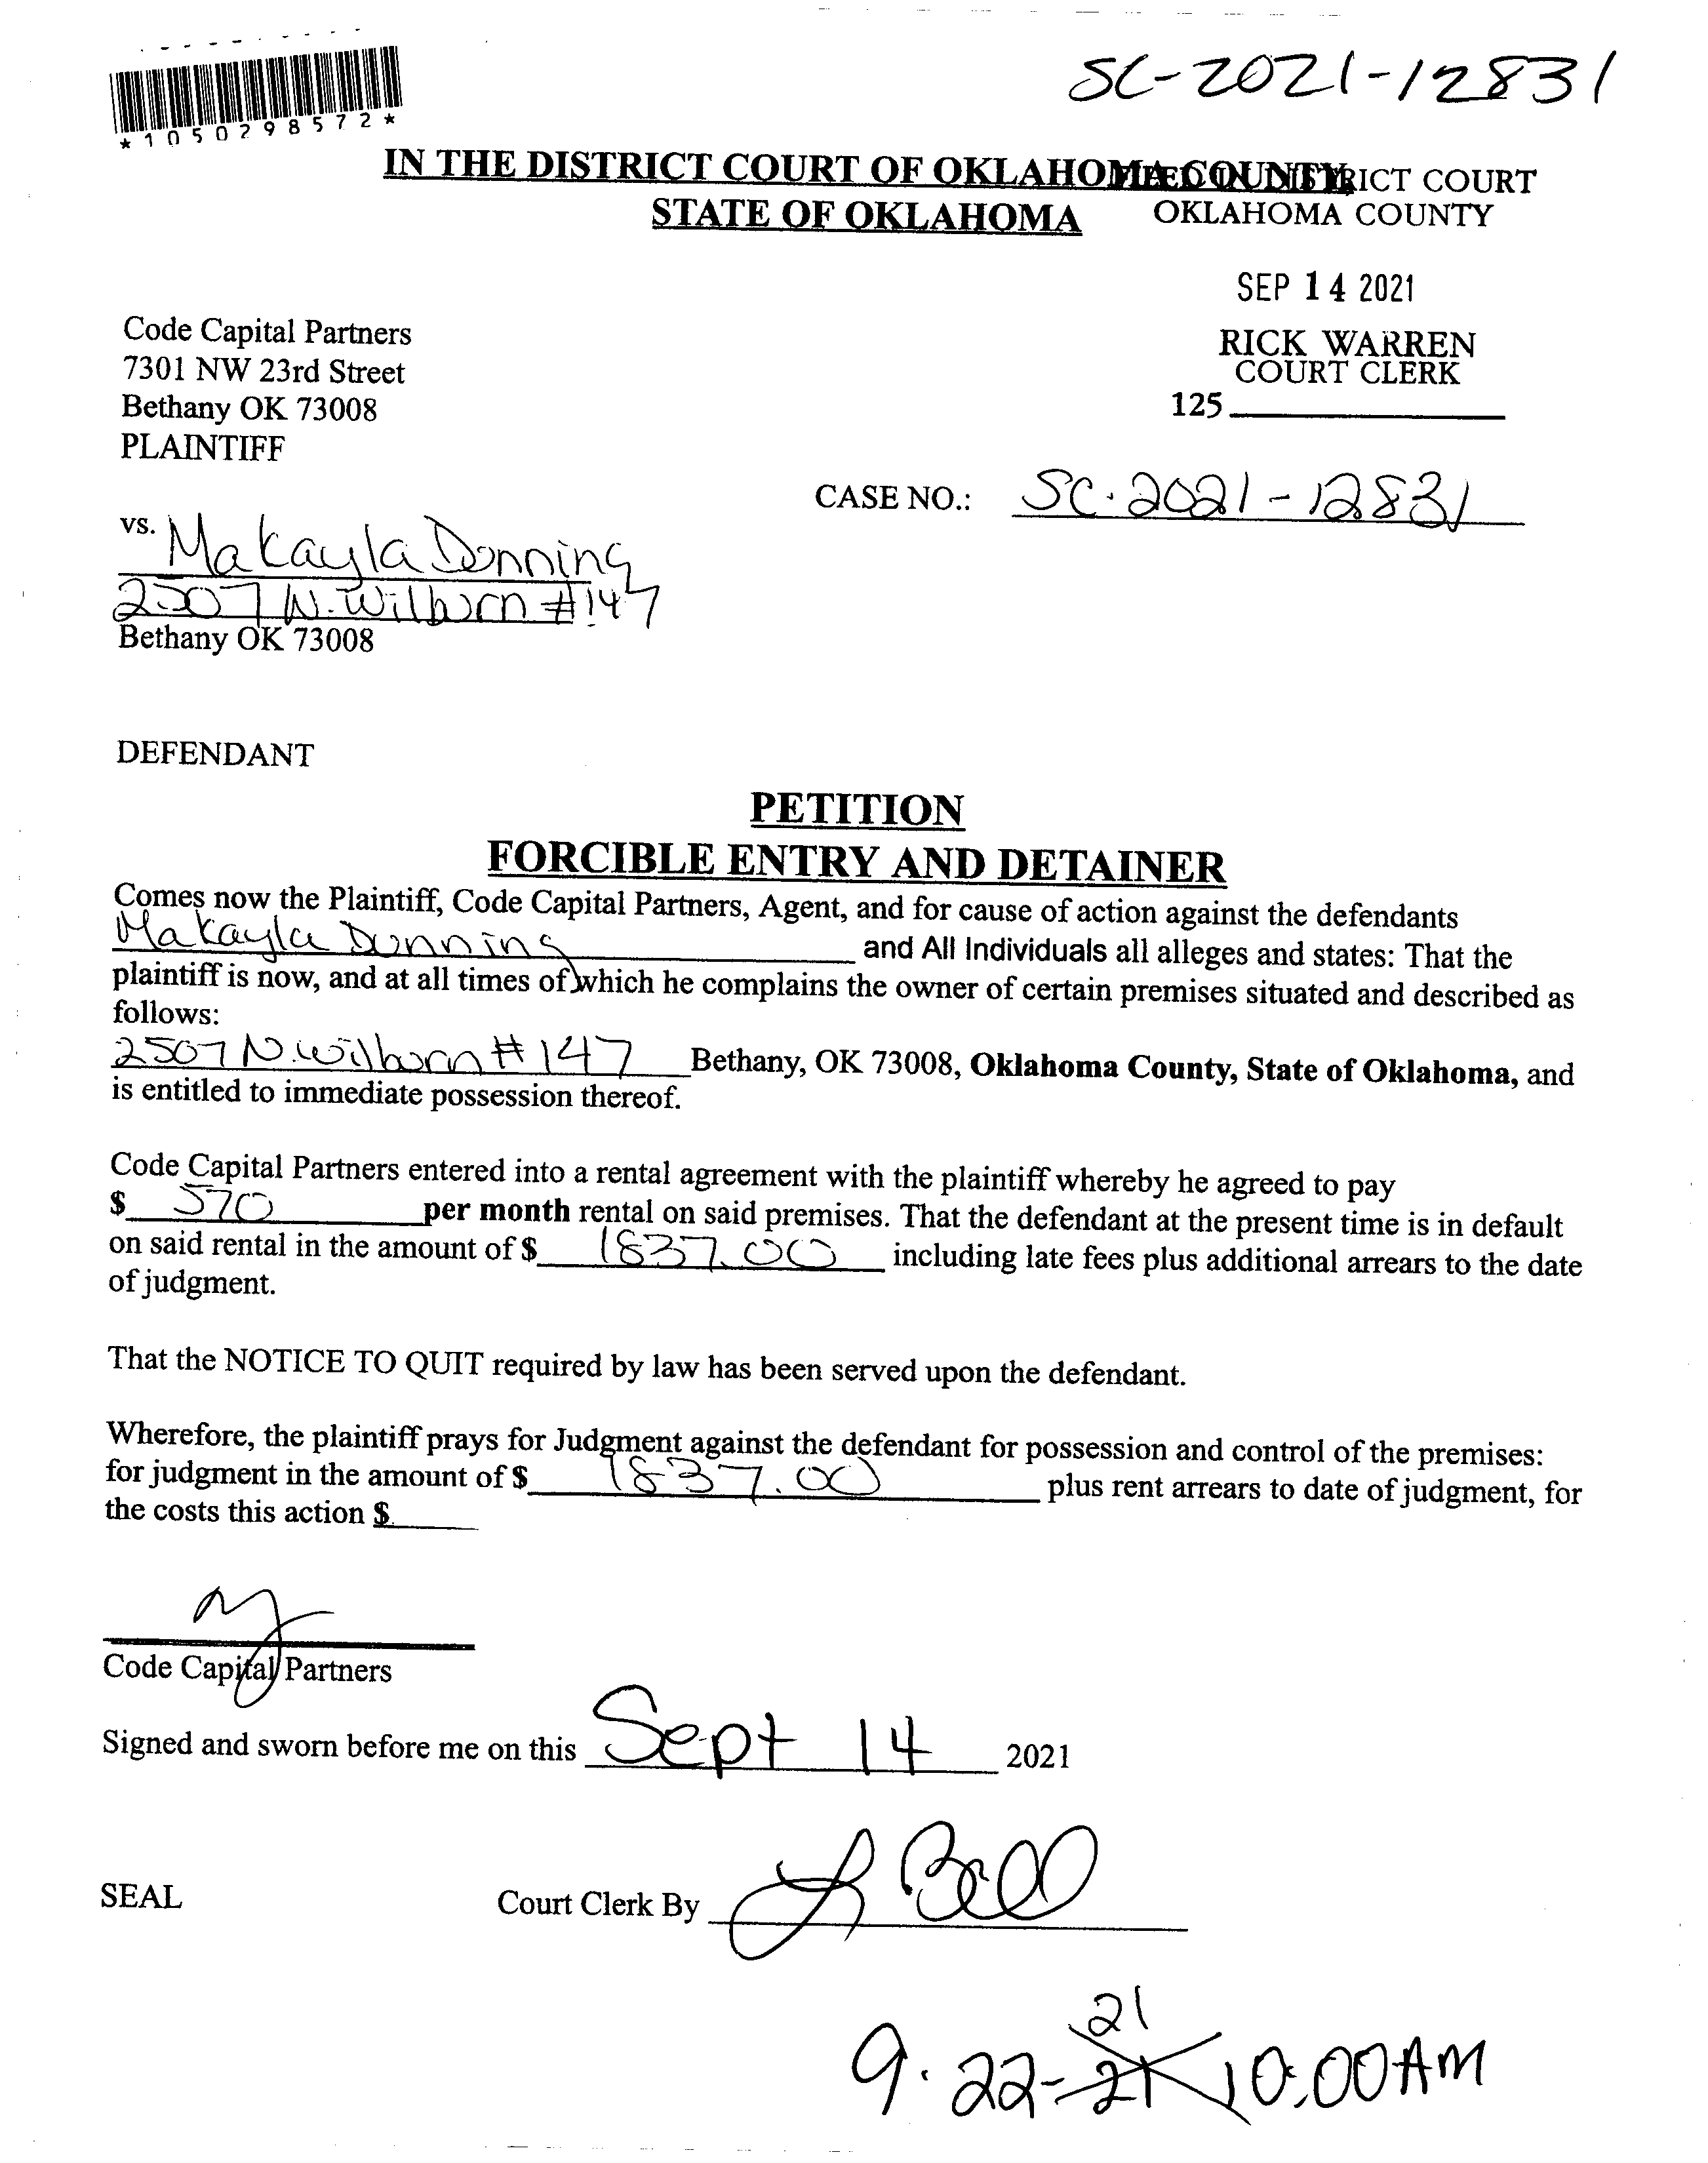 SC-2021-12831
*1050298572*
IN THE DISTRICT COURT OF OKLAHOMA COUNTY,
STATE OF OKLAHOMA
FILED IN DISTRICT COURT
OKLAHOMA COUNTY
SEP 14 2021
RICK WARREN
COURT CLERK
125
Code Capital Partners
7301 NW 23rd Street
Bethany OK 73008
PLAINTIFF
CASE NO.: SC-2021-12831
vs. Makayla Dunning
2507 N. Wilburn #147
Bethany OK 73008
DEFENDANT
PETITION
FORCIBLE ENTRY AND DETAINER
Comes now the Plaintiff, Code Capital Partners, Agent, and for cause of action against the defendants
Makayla Dunning and All Individuals all alleges and states: That the
plaintiff is now, and at all times of which he complains the owner of certain premises situated and described as
follows:
2507 N. Wilburn #147 Bethany, OK 73008, Oklahoma County, State of Oklahoma, and
is entitled to immediate possession thereof.
Code Capital Partners entered into a rental agreement with the plaintiff whereby he agreed to pay
$ 570 per month rental on said premises. That the defendant at the present time is in default
on said rental in the amount of $ 1837.00 including late fees plus additional arrears to the date
of judgment.
That the NOTICE TO QUIT required by law has been served upon the defendant.
Wherefore, the plaintiff prays for Judgment against the defendant for possession and control of the premises:
for judgment in the amount of $ 1837.00 plus rent arrears to date of judgment, for
the costs this action $
Code Capital Partners
Signed and sworn before me on this Sept 14 2021
SEAL Court Clerk By L Bell
21
9-22-21 10:00AM